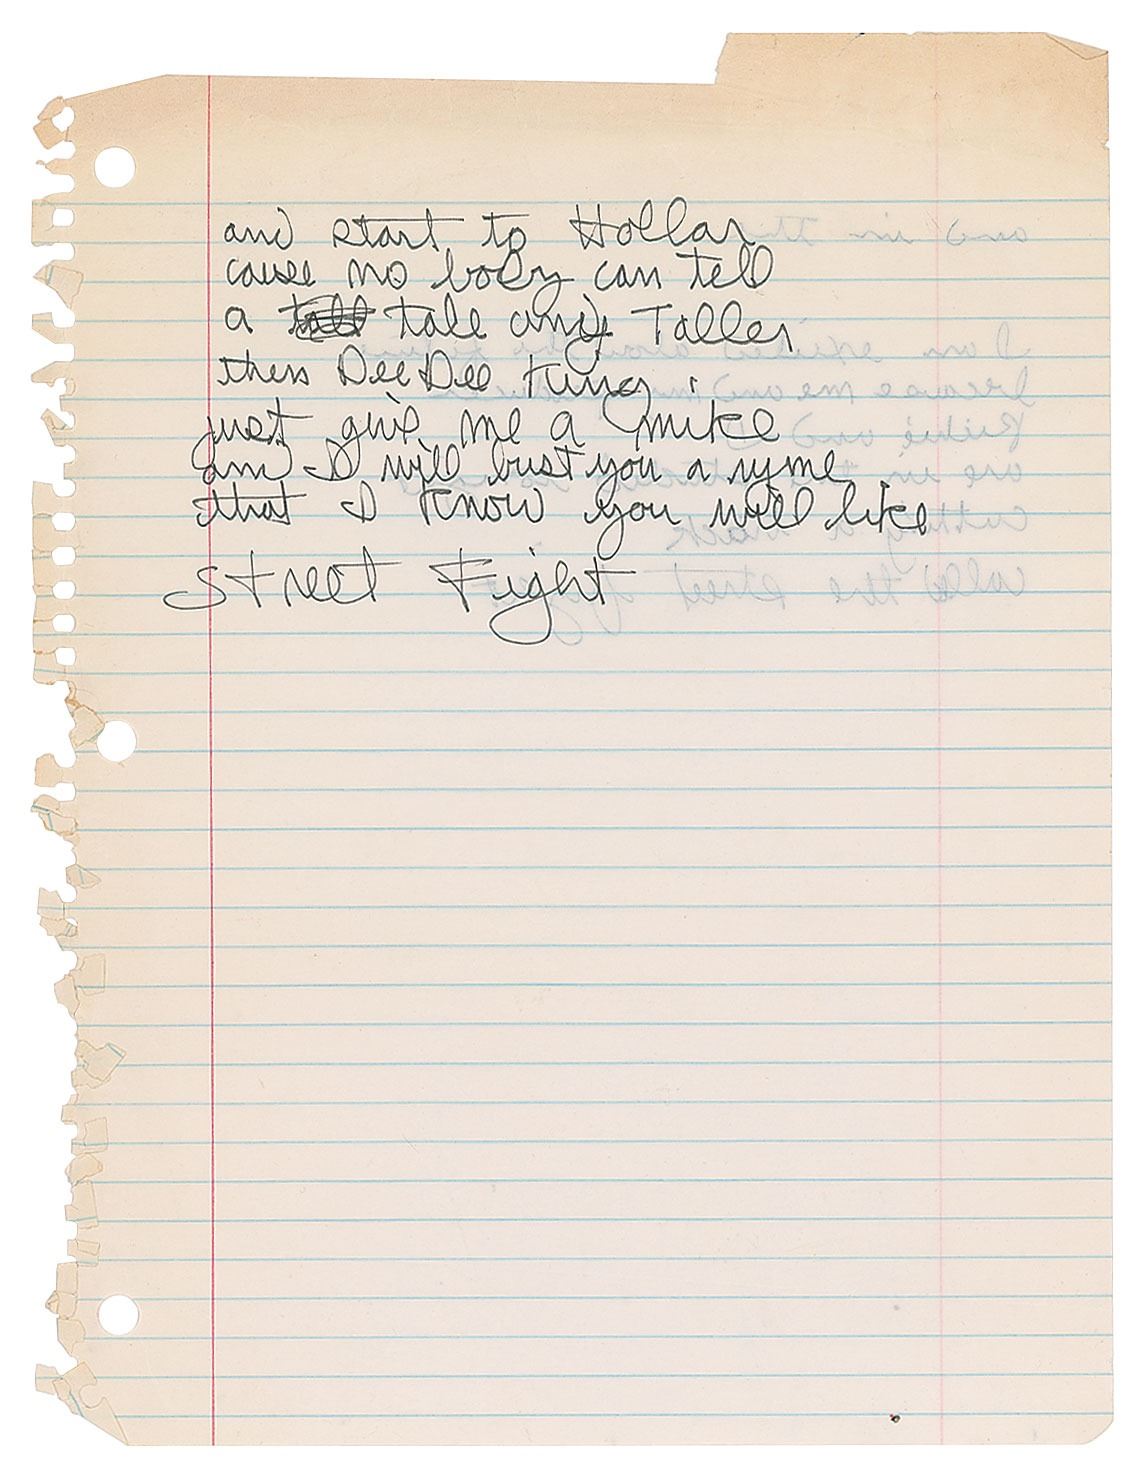 and start to Hollar
cause no body can tell
a tale any Taller
then DeeDee King
just give me a mike
and I will bust you a ryme
that I know you will like
Street Fight